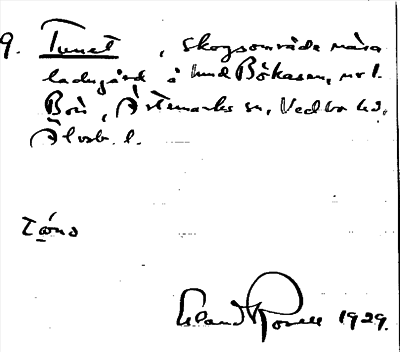 9. Tunet, skogsområde nära
ladugård å hmd Bökasen, nr 1.
Bön, Ärtemarks sn, Vedbo hd,
Älvsb. l.
Erland Rosell 1929.